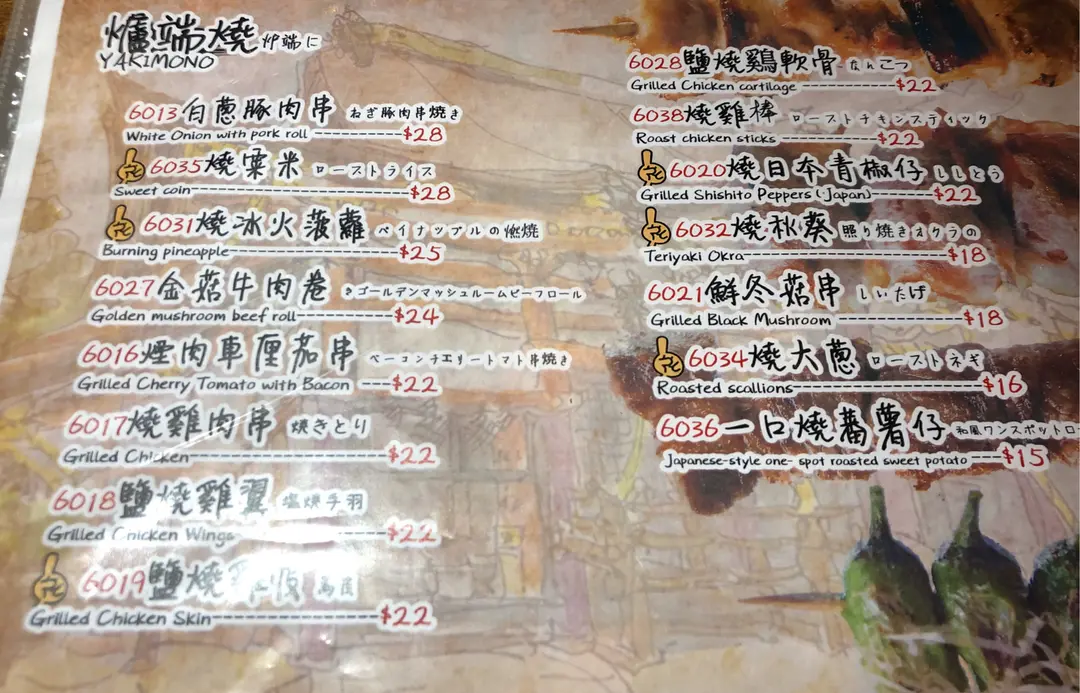 爐端燒 炉端に
YAKIMONO
6013 白蔥豚肉串 ねぎ豚肉串焼き
White Onion with pork roll ----- $28
6035 燒粟米 ローストライス
Sweet coin ----- $28
6031 燒冰火菠蘿 ペイナップルの燃焼
Burning pineapple ----- $25
6027 金菇牛肉卷 ゴールデンマッシュルームビーフロール
Golden mushroom beef roll ----- $24
6016 煙肉車厘茄串 ベーコンチエリートマト串焼き
Grilled Cherry Tomato with Bacon --- $22
6017 燒雞肉串 焼きとり
Grilled Chicken ----- $22
6018 鹽燒雞翼 塩焼手羽
Grilled Chicken Wings ----- $22
6019 鹽燒
Grilled Chicken Skin ----- $22
6028 鹽燒鷄軟骨 なんこつ
Grilled Chicken cartilage ----- $22
6038 燒雞棒 ローストチキンスティック
Roast chicken sticks ----- $22
6020 燒日本青椒仔 ししとう
Grilled Shishito Peppers (Japan) ----- $22
6032 燒秋葵 照り焼きオクラの
Teriyaki Okra ----- $18
6021 鮮冬菇串 しいたけ
Grilled Black Mushroom ----- $18
6034 燒大蔥 ローストネギ
Roasted scallions ----- $16
6036 一口燒蕃薯仔 和風ワンスポットロー
Japanese-style one- spot roasted sweet potato ---- $15